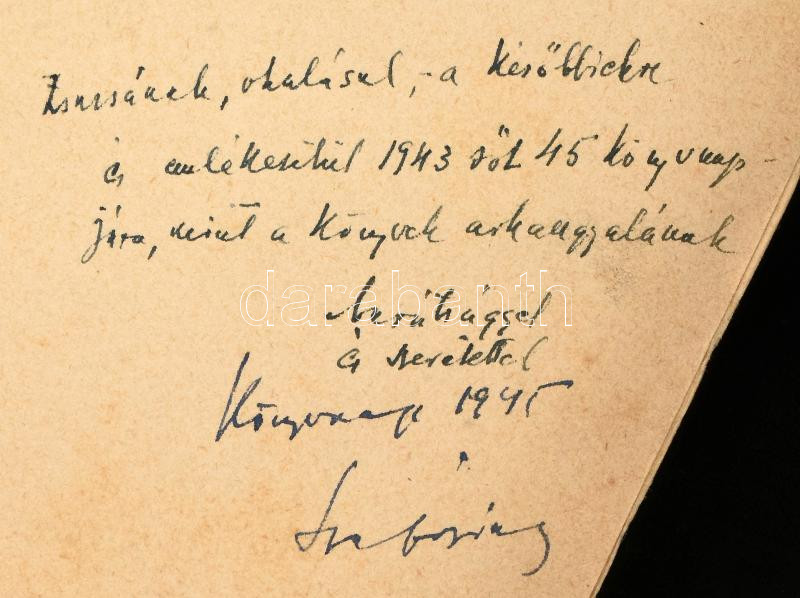 Zsuzsának, okulásul, - a későbbiekre
és emlékeztetül 1943 sőt 45 könyvnap-
jára, mint a Könyvek arkangyalának
barátsággal
és szeretettel
Könyvnap 1945
darabanth